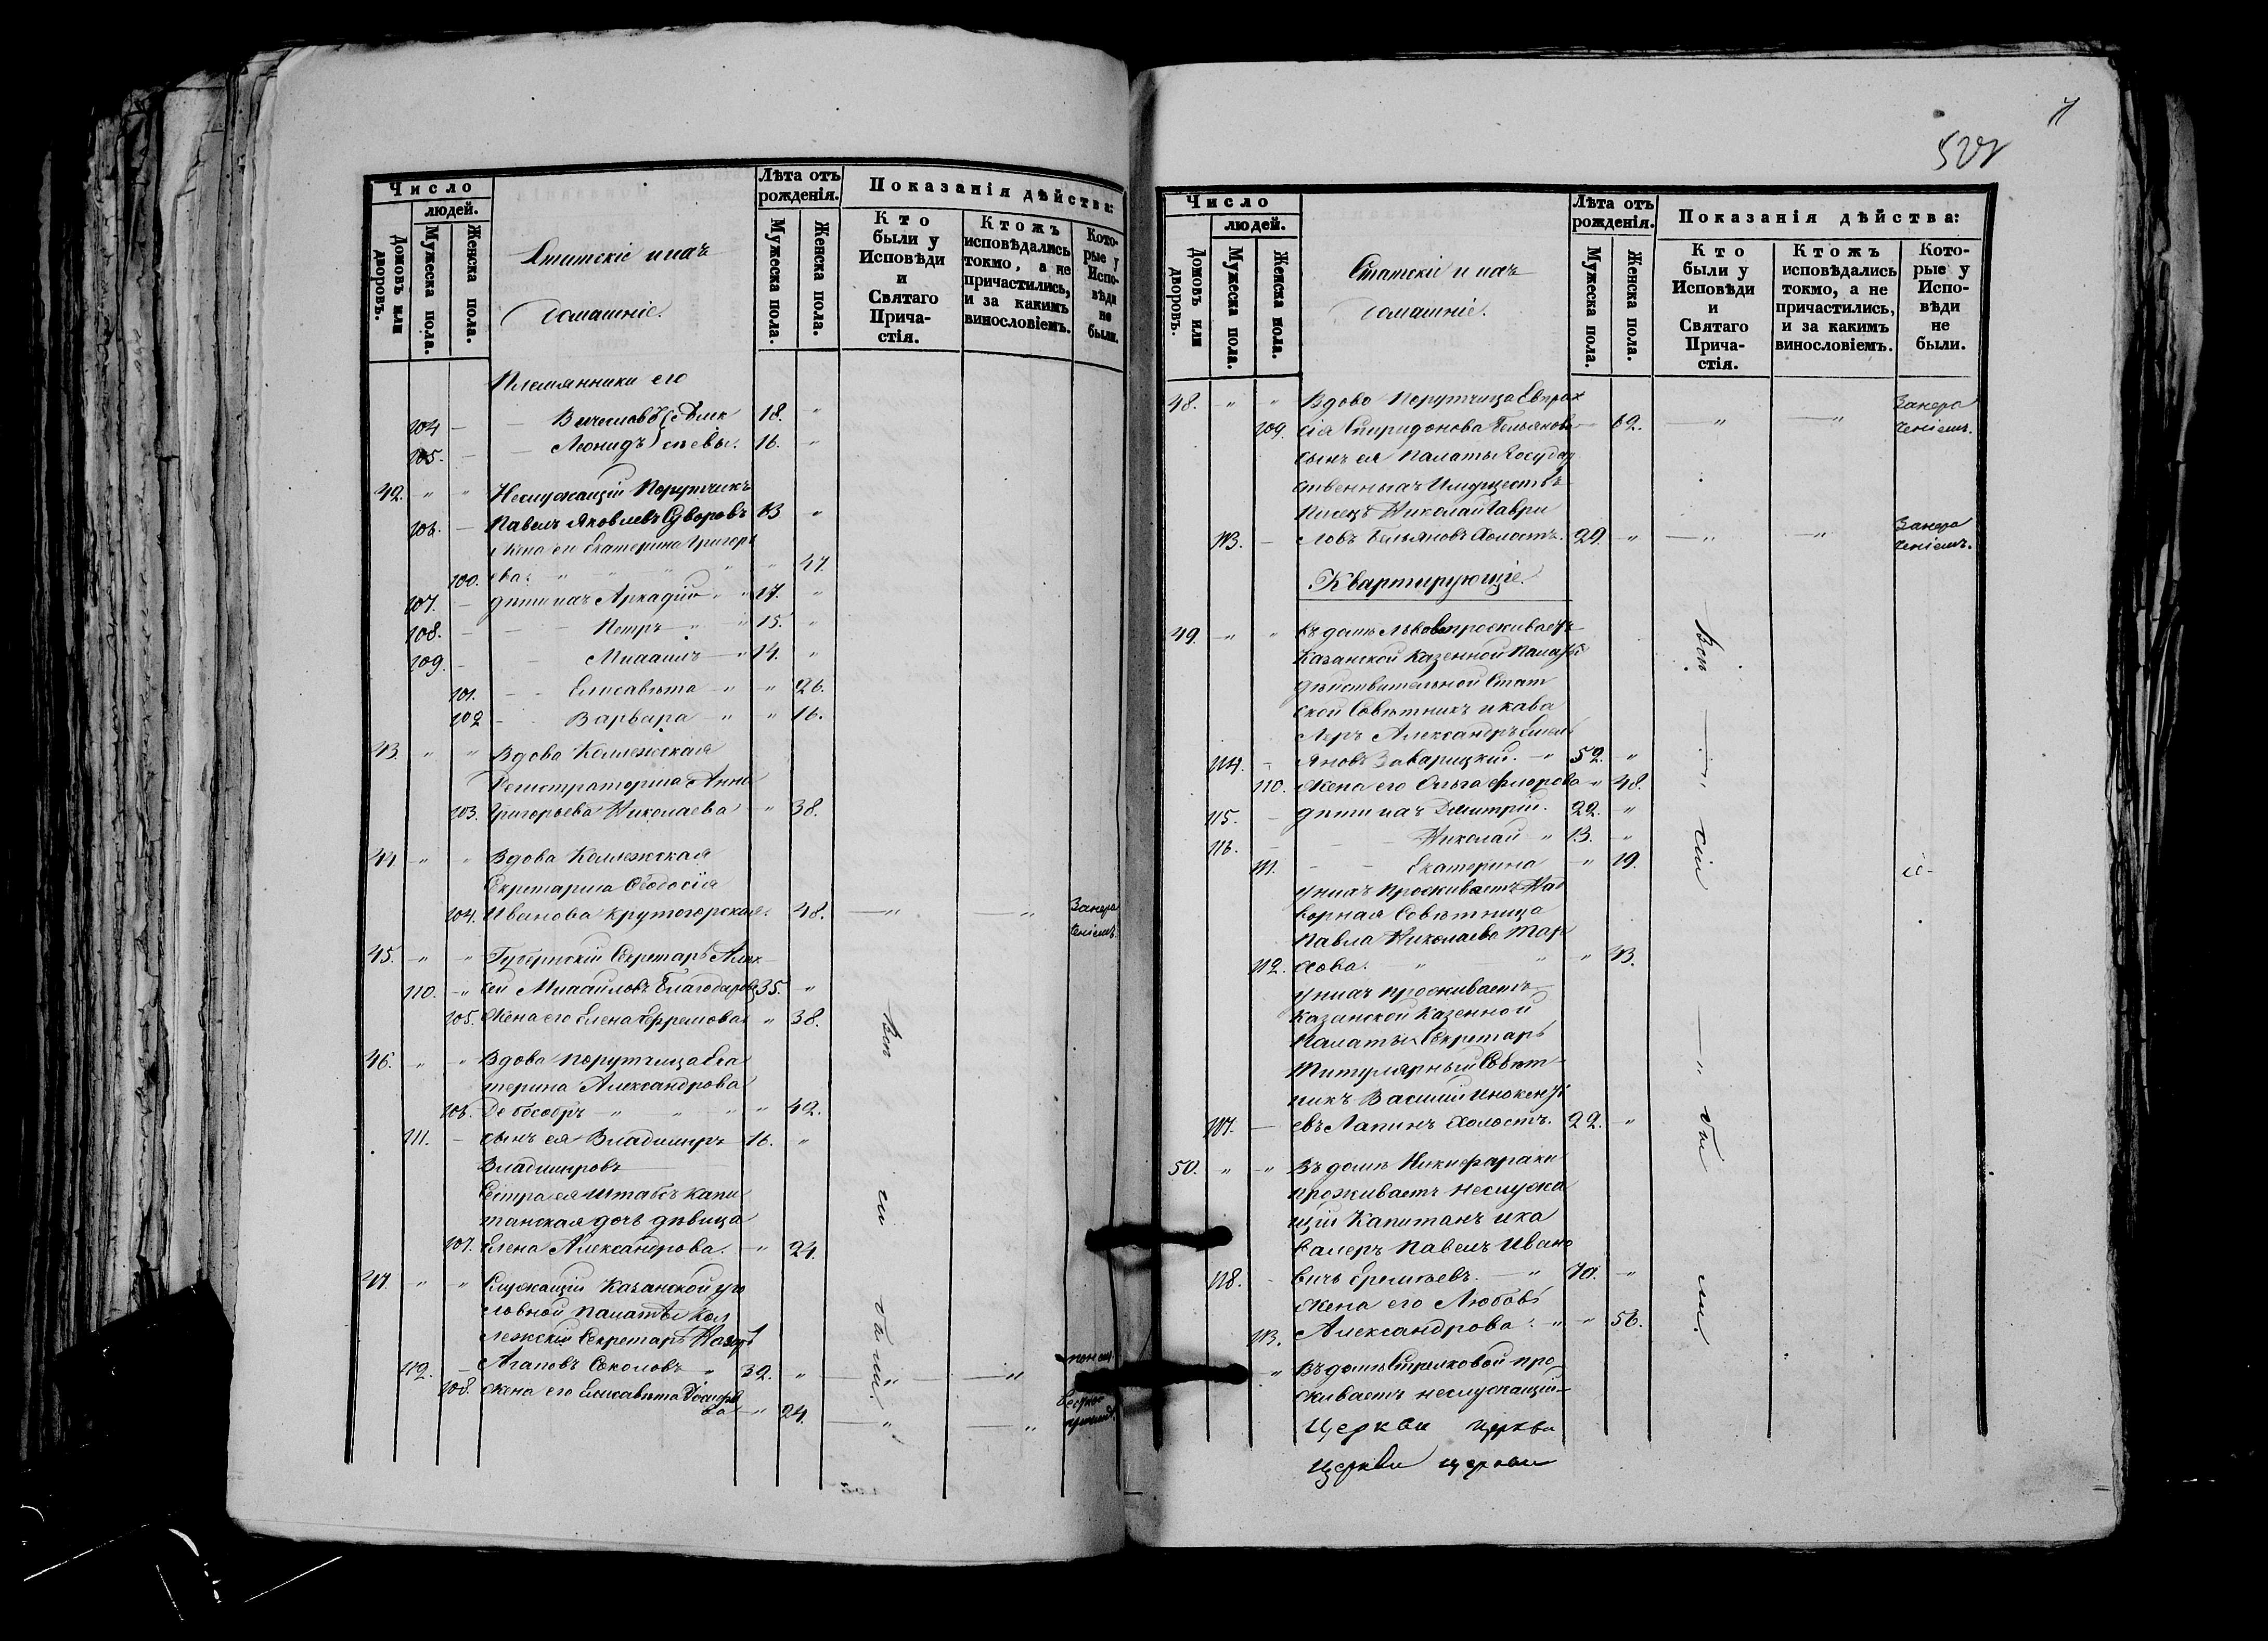 Число
людей.
Домовъ или дворовъ.
Мужеска пола.
Женска пола.
Статскіе и ихъ
домашніе.
Лѣта отъ
рожденія.
Мужеска пола.
Женска пола.
Показанія дѣйства:
Кто
были у
Исповѣди
и
Святаго
Прича-
стія.
Ктожъ
исповѣдались
токмо, а не
причастились,
и за какимъ
винословіемъ.
Кото-
рые у
Испо-
вѣди
не
были.
Племянники его
104 Вячеславъ Алек 18. "
105. Леонидъ сѣевы. 16. "
42. " " Неслужащій Порутчикъ
106. Павелъ Яковлевъ Суворовъ 63 "
Жена его Екатерина Григорь
100. ева. " " 47.
107. дѣти ихъ Аркадій " 17. "
108. Петръ " 15. "
109. Михаилъ " 14. "
101. Елисавета " " 26.
102 Варвара " " 16.
43. " " Вдова Коллежская
Регистраторша Анна
103. Григорьева Николаева " 38.
44. " " Вдова Коллежская
Секретарша Ѳеодосія
104. Иванова Крутогорская. 48. " " Занера
ченіемъ.
45. " " Губернскій Секретарь Алек
110. " сѣй Михайловъ Благодаровъ 35. "
105. Жена его Елена Ефремова " 38.
46. " " Вдова Порутчица Ека
терина Александрова
106. " " " 42.
111. сынъ ея Владимиръ 16. "
Владимировъ
Сестра ея Штабсъ Капи
танская дочь дѣвица
107. Елена Александрова. " 24.
47. " " Служащій Казанской уго
ловной Палаты Кол
лежскій Секретарь
112. Агаповъ Соколовъ " 32. " " "
108. Жена его Елисавета
ва " 24. " "
Всѣ
сіи
были.
527
Число
людей.
Домовъ или дворовъ.
Мужеска пола.
Женска пола.
Статскіе и ихъ
домашніе.
Лѣта отъ
рожденія.
Мужеска пола.
Женска пола.
Показанія дѣйства:
Кто
были у
Исповѣди
и
Святаго
Прича-
стія.
Ктожъ
исповѣдались
токмо, а не
причастились,
и за какимъ
винословіемъ.
Кото-
рые у
Испо-
вѣди
не
были.
48. " " Вдова Порутчица Евпрак Занера
109. сія Спиридонова 62. " " ченіемъ.
сынъ ея Палаты Государ
ственныхъ Имуществъ
Писецъ Николай Гаври
113. ловъ Холостъ. 29. " " " Занера
ченіемъ.
Квартирующіе.
49. " " Въ домѣ Львова проживаетъ
Казанской Казенной Палаты
Дѣйствительной Стат
ской Совѣтникъ и кава
леръ Александръ Емель
114. яновъ Заварицкій. " 52. "
110. Жена его Ольга Флорова " 48.
115. дѣти ихъ Дмитрій. 22. "
116. Николай " 13. "
111. Екатерина " 19.
У нихъ проживаетъ На
ворная Совѣтница
Павла Николаева Тар
112. хова. " " " 43.
У нихъ проживаетъ
Казанской Казенной
Палаты Секретарь
Титулярный Совѣт
никъ Василій Инокентi
117. евъ Лапинъ Холостъ. 22. "
50. " " Въ домѣ
проживаетъ неслужа
щій Капитанъ и ка
валеръ Павелъ Ивано
118. вичь Еремѣевъ. " 70. "
Жена его Любовь
113. Александрова. " " 56.
" Въ домѣ Стрелковой про
живаетъ неслужащій
Церкви Церкви
Церкви церкви
Всѣ
сіи
бы
ли.